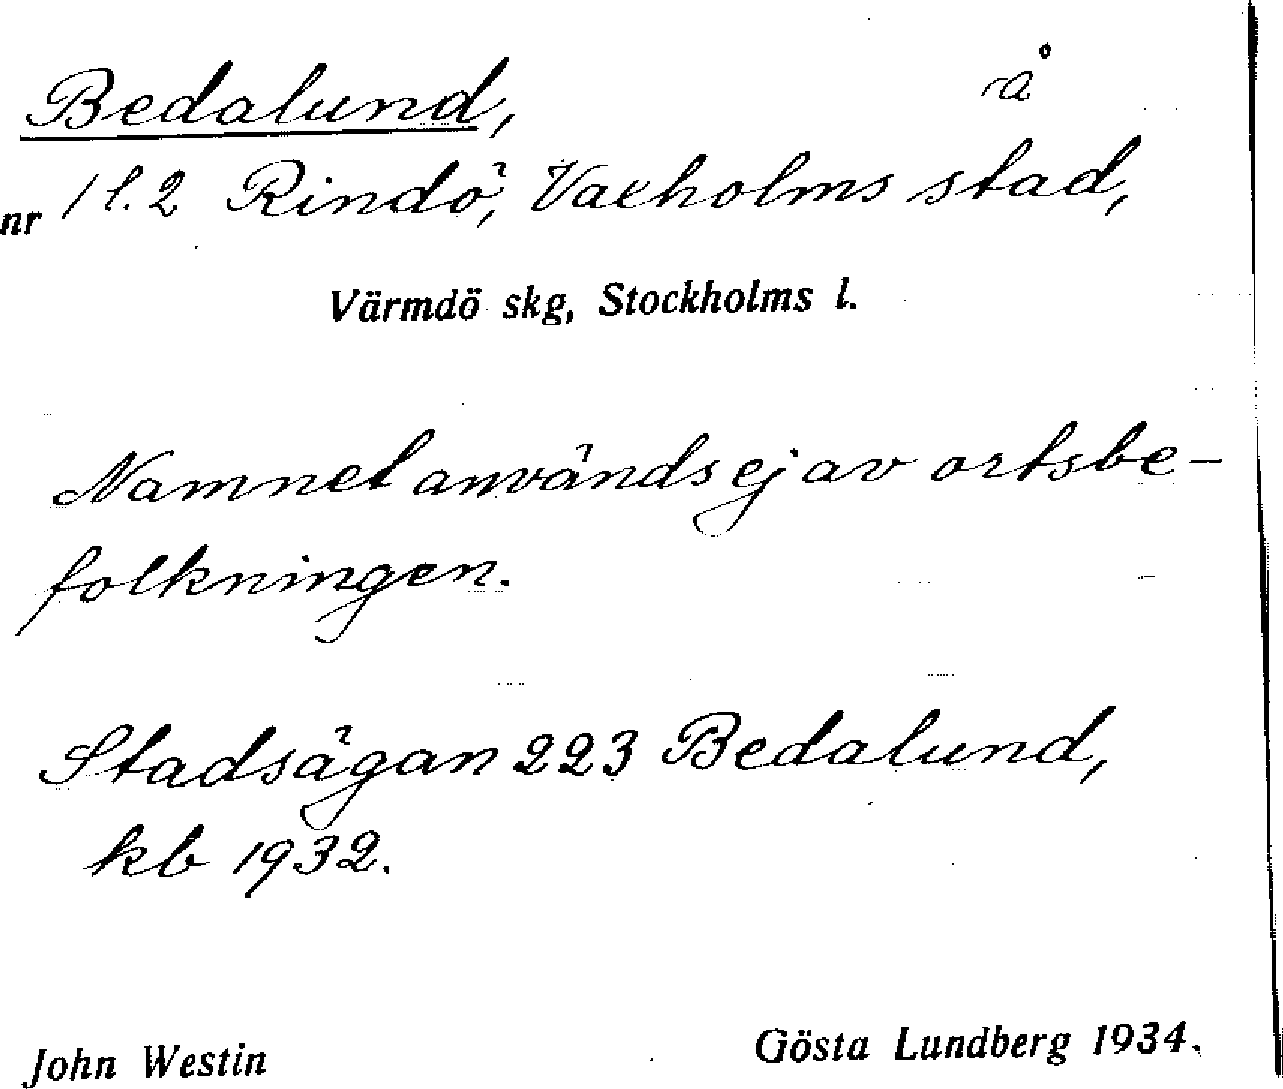 Bedalund, rå
nr 1 l. 2 Rindö, Vaxholms stad,
Värmdö skg, Stockholms l.
Namnet användes ej av ortsbe-
folkningen.
Stadsägan 223 Bedalund,
kb 1932.
John Westin Gösta Lundberg 1934.